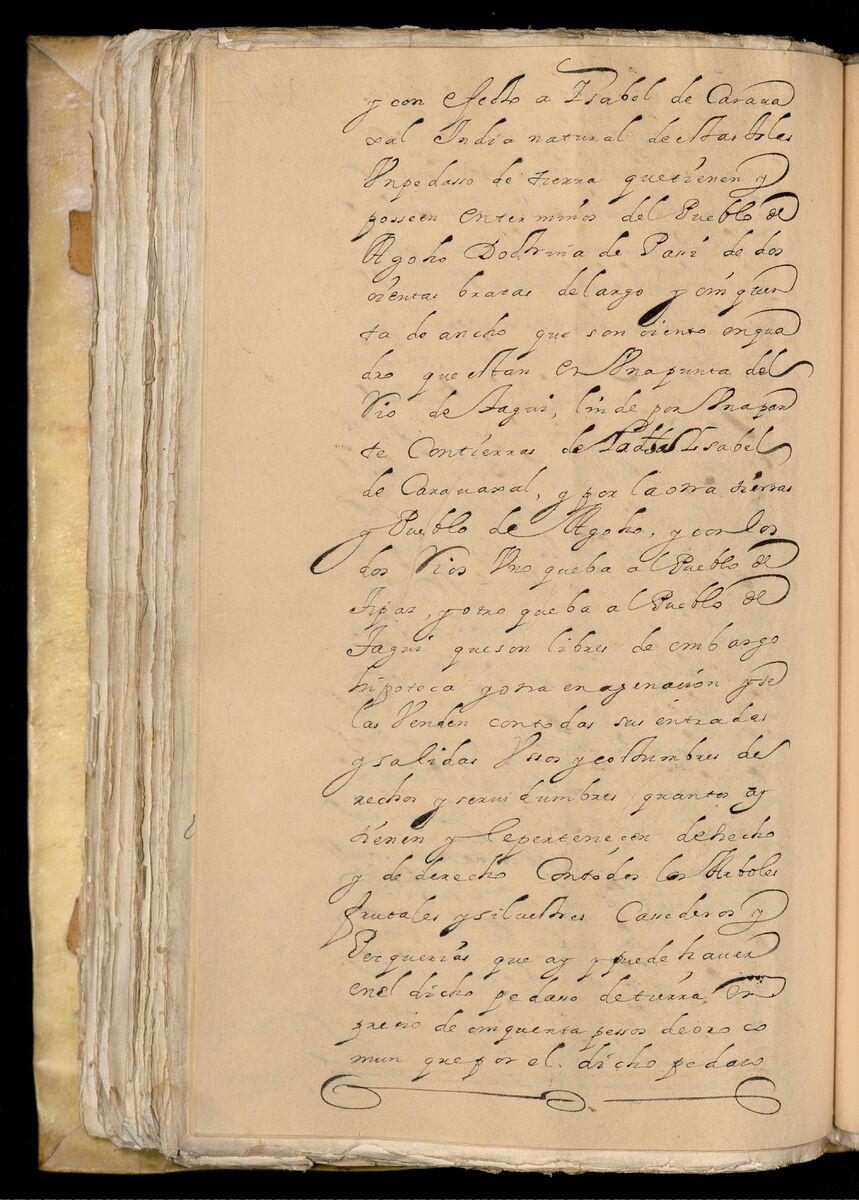 y con efecto a Ysabel de Caraua
xal India natural de estas Yslas
Vn pedasso de tierra que tienen y
posseen en terminos del Pueblo de
Agoho Doctrina de Pasi de dos
cientas braças de largo y cinquen
ta de ancho que son ciento en qua
dro que estan en Vna punta del
Rio de Iagui, linde por Vna par
te Con tierras de Isabel
de Carauaxal, y por la otra tierras
y Pueblo de Agoho, y con los
dos Rios Vno que ba al Pueblo de
Iipar, y otro que ba al Pueblo de
Iagui que son libres de embargo
hipoteca y otra enagenación y se
las Venden con todas sus entradas
y salidas Vssos y costumbres de
rechos y seruidumbres quantos ay
tienen y le pertenecen de hecho
y de derecho Con todos los Arboles
frutales y siluestres Cassaderos y
Pesquerias que ay y puede hauer
en el dicho pedasso de tierra, en
precio de cinquenta pessos de oro co
mun que por el dicho pedaso